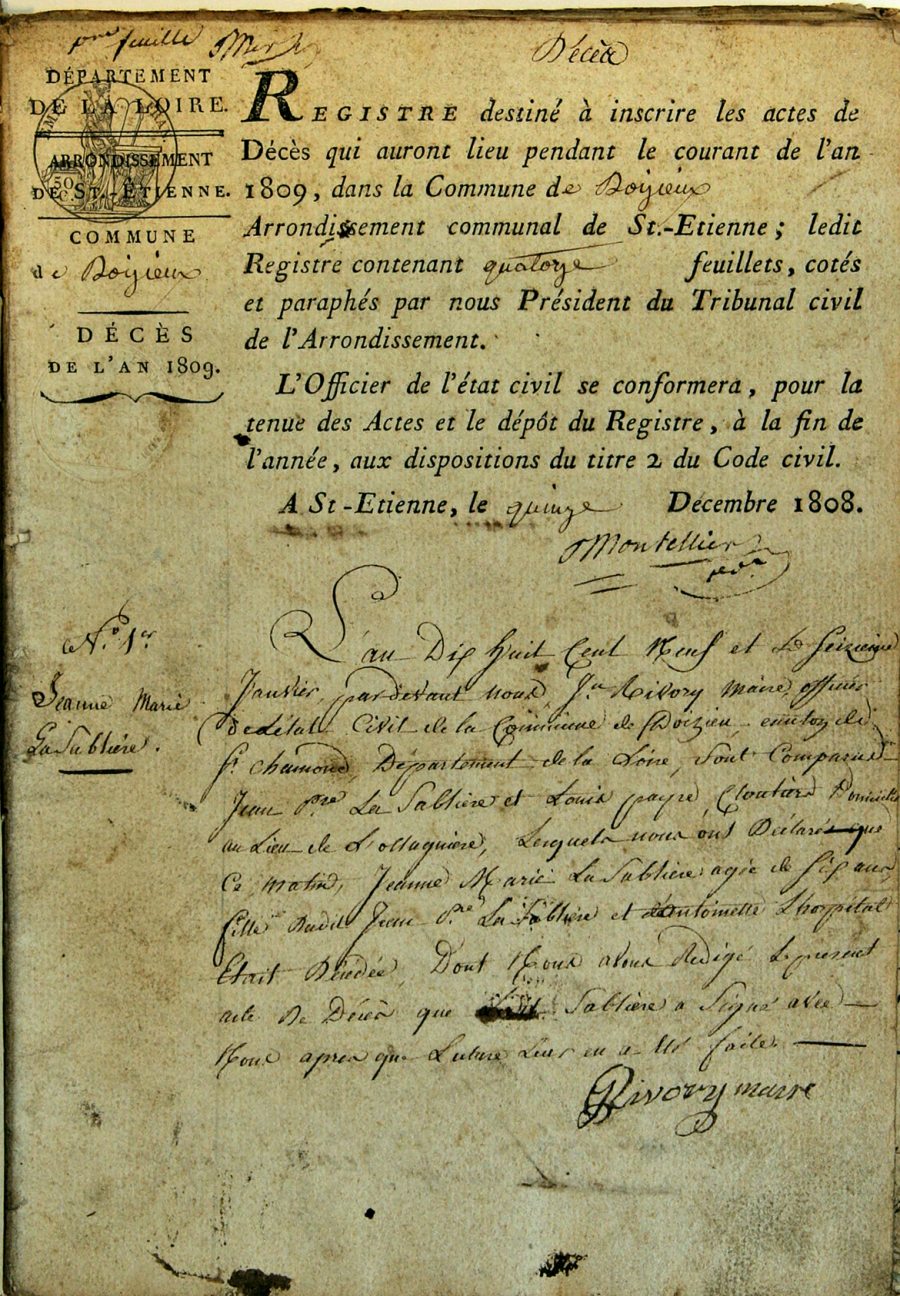 pre feuille
Décès
DÉPARTEMENT
DE LA LOIRE.
ARRONDISSEMENT
DE ST.-ÉTIENNE.
COMMUNE
de Doizieux
DÉCÈS
DE L'AN 1809.
REGISTRE destiné à inscrire les actes de
Décès qui auront lieu pendant le courant de l'an
1809, dans la Commune de Doizieux
Arrondissement communal de St.-Etienne; ledit
Registre contenant quatorze feuillets, cotés
et paraphés par nous Président du Tribunal civil
de l'Arrondissement.
L'Officier de l'état civil se conformera, pour la
tenue des Actes et le dépôt du Registre, à la fin de
l'année, aux dispositions du titre 2 du Code civil.
A St-Etienne, le quinze Décembre 1808.
Montellier
N.o 1.er
Jeanne Marie
La Sablière.
L'an Dix huit Cent Neuf et le Seizieme
Janvier, pardevant nous, Jn Rivory maire officier
de létat Civil de la Commune de Doizieu, canton de
St chamond, Département de la Loire, Sont Comparus
Jean Pre La Sablière et Louis payre, Cloutiers Domiciliés
au Lieu de L'ollagnière, Lesquels nous ont Déclaré que
Ce matin, Jeanne Marie La Sabliere agée de Six ans,
fille Dudit Jean Pre La Sablière et dantoinette Lhospital
Etait Décédée, Dont Nous avons Redigé le present
acte De Décès que Sablière a Signé avec
Nous après que Lecture Leur en a été faite.
Rivory maire